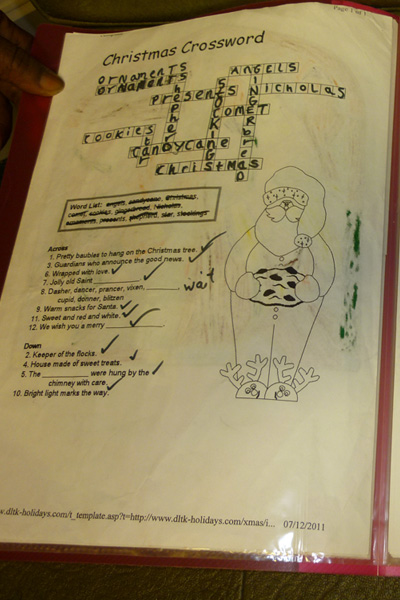 Page 1 of 1
Christmas Crossword
ORNAMENTS
ORNAMENTS
ANGELS
PRESENTS
NICHOLAS
COMET
COOKIES
CANDYCANE
CHRISTMAS
SHEPHERD
STOCKINGS
GINGERBREAD
STAR
Word List: angels, candycane, christmas,
comet, cookies, gingerbread, Nicholas,
ornaments, presents, shepherd, star, stockings
Across
1. Pretty baubles to hang on the Christmas tree.
3. Guardians who announce the good news.
6. Wrapped with love.
7. Jolly old Saint ________.
8. Dasher, dancer, prancer, vixen, ________, wait
cupid, donner, blitzen
9. Warm snacks for Santa.
11. Sweet and red and white.
12. We wish you a merry ____________.
Down
2. Keeper of the flocks.
4. House made of sweet treats.
5. The ____________ were hung by the
chimney with care.
10. Bright light marks the way.
w.dltk-holidays.com/t_template.asp?t=http://www.dltk-holidays.com/xmas/i... 07/12/2011